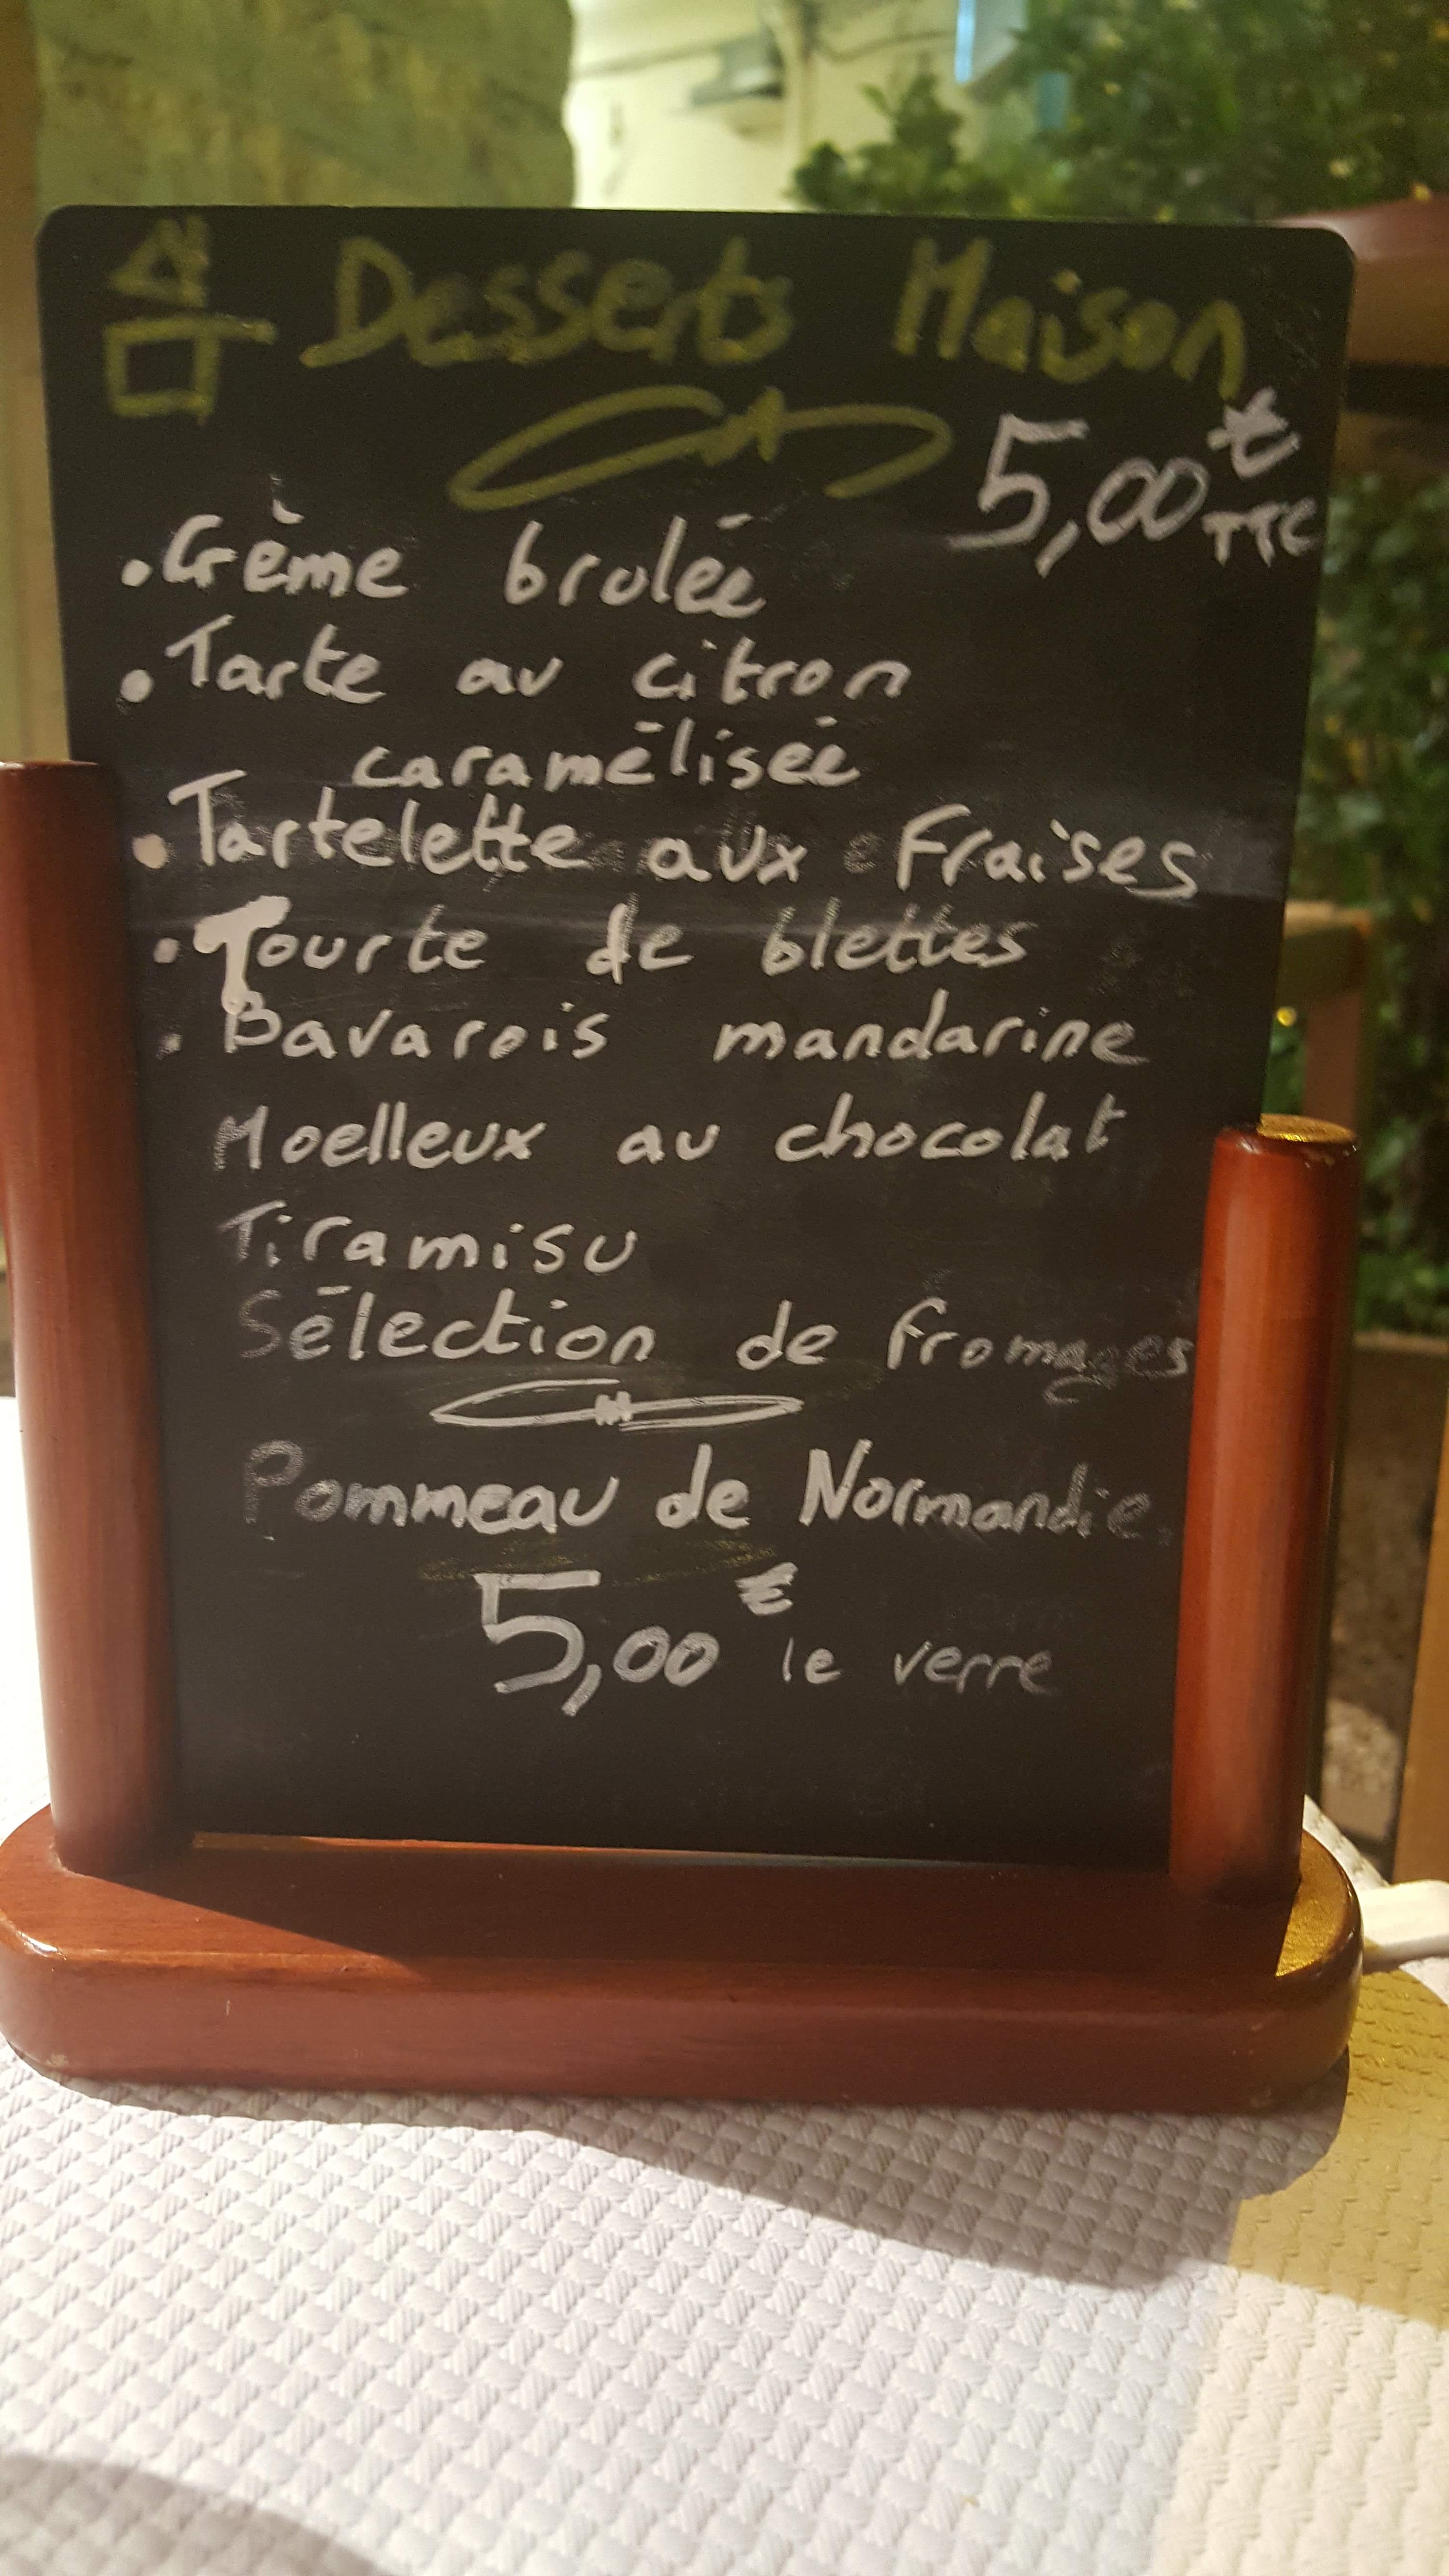 Desserts Maison
5,00 € TTC
• Crème brulée
• Tarte au citron
caramélisée
• Tartelette aux Fraises
• Tourte de blettes
• Bavarois mandarine
Moelleux au chocolat
Tiramisu
Sélection de fromages
Pommeau de Normandie.
5,00 € le verre